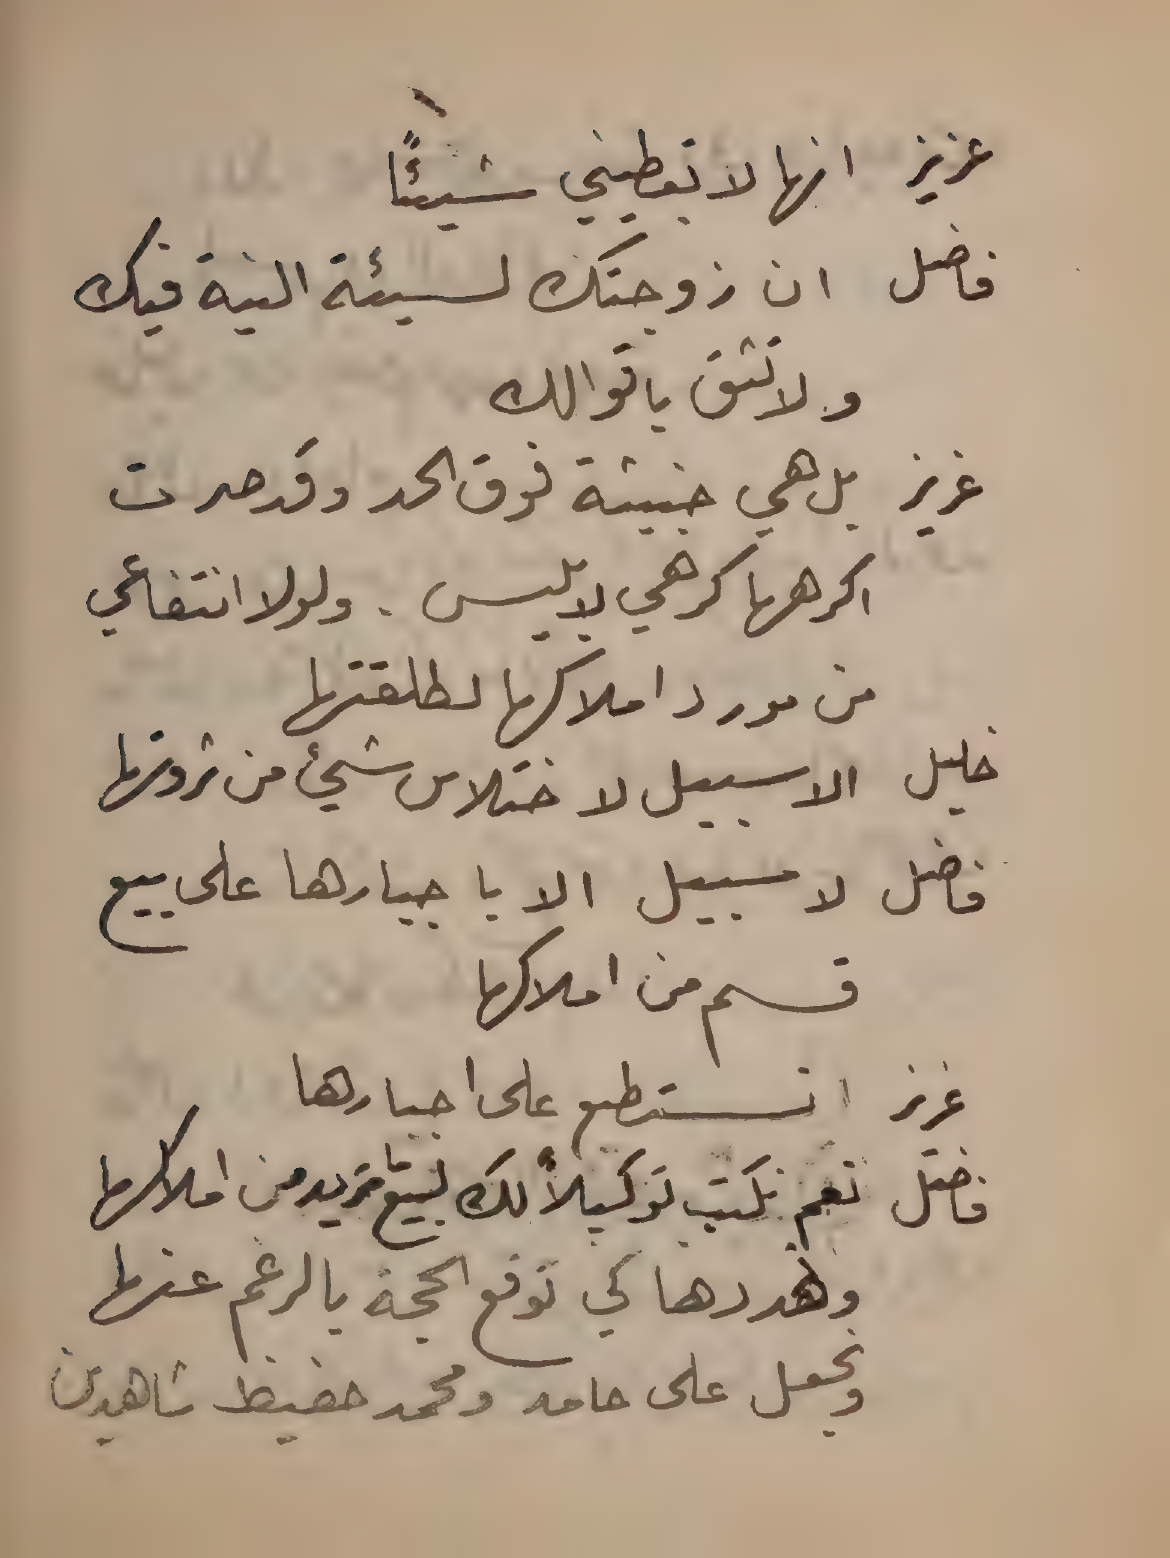 عزيز انها لا تعطيني شيئًا
فاضل ان زوجتك لسيئة النية فيك
ولا تثق باقوالك
عزيز بل هي خبيثة فوق الحد وقد صرت
اكرهها كرهي لابليس . ولولا انتفاعي
من مورد املاكها لطلقتها
خليل الا سبيل لاختلاس شيئ من ثروتها
فاضل لا سبيل الا باجبارها على بيع
قسم من املاكها
عزيز انستطيع على اجبارها
فاضل نعم نكتب توكيلاً لك لبيع ما تريد من املاكها
وهددها كي توقع الحجة بالرغم عنها
ونجعل على حامد ومحمد حفيظ شاهدين